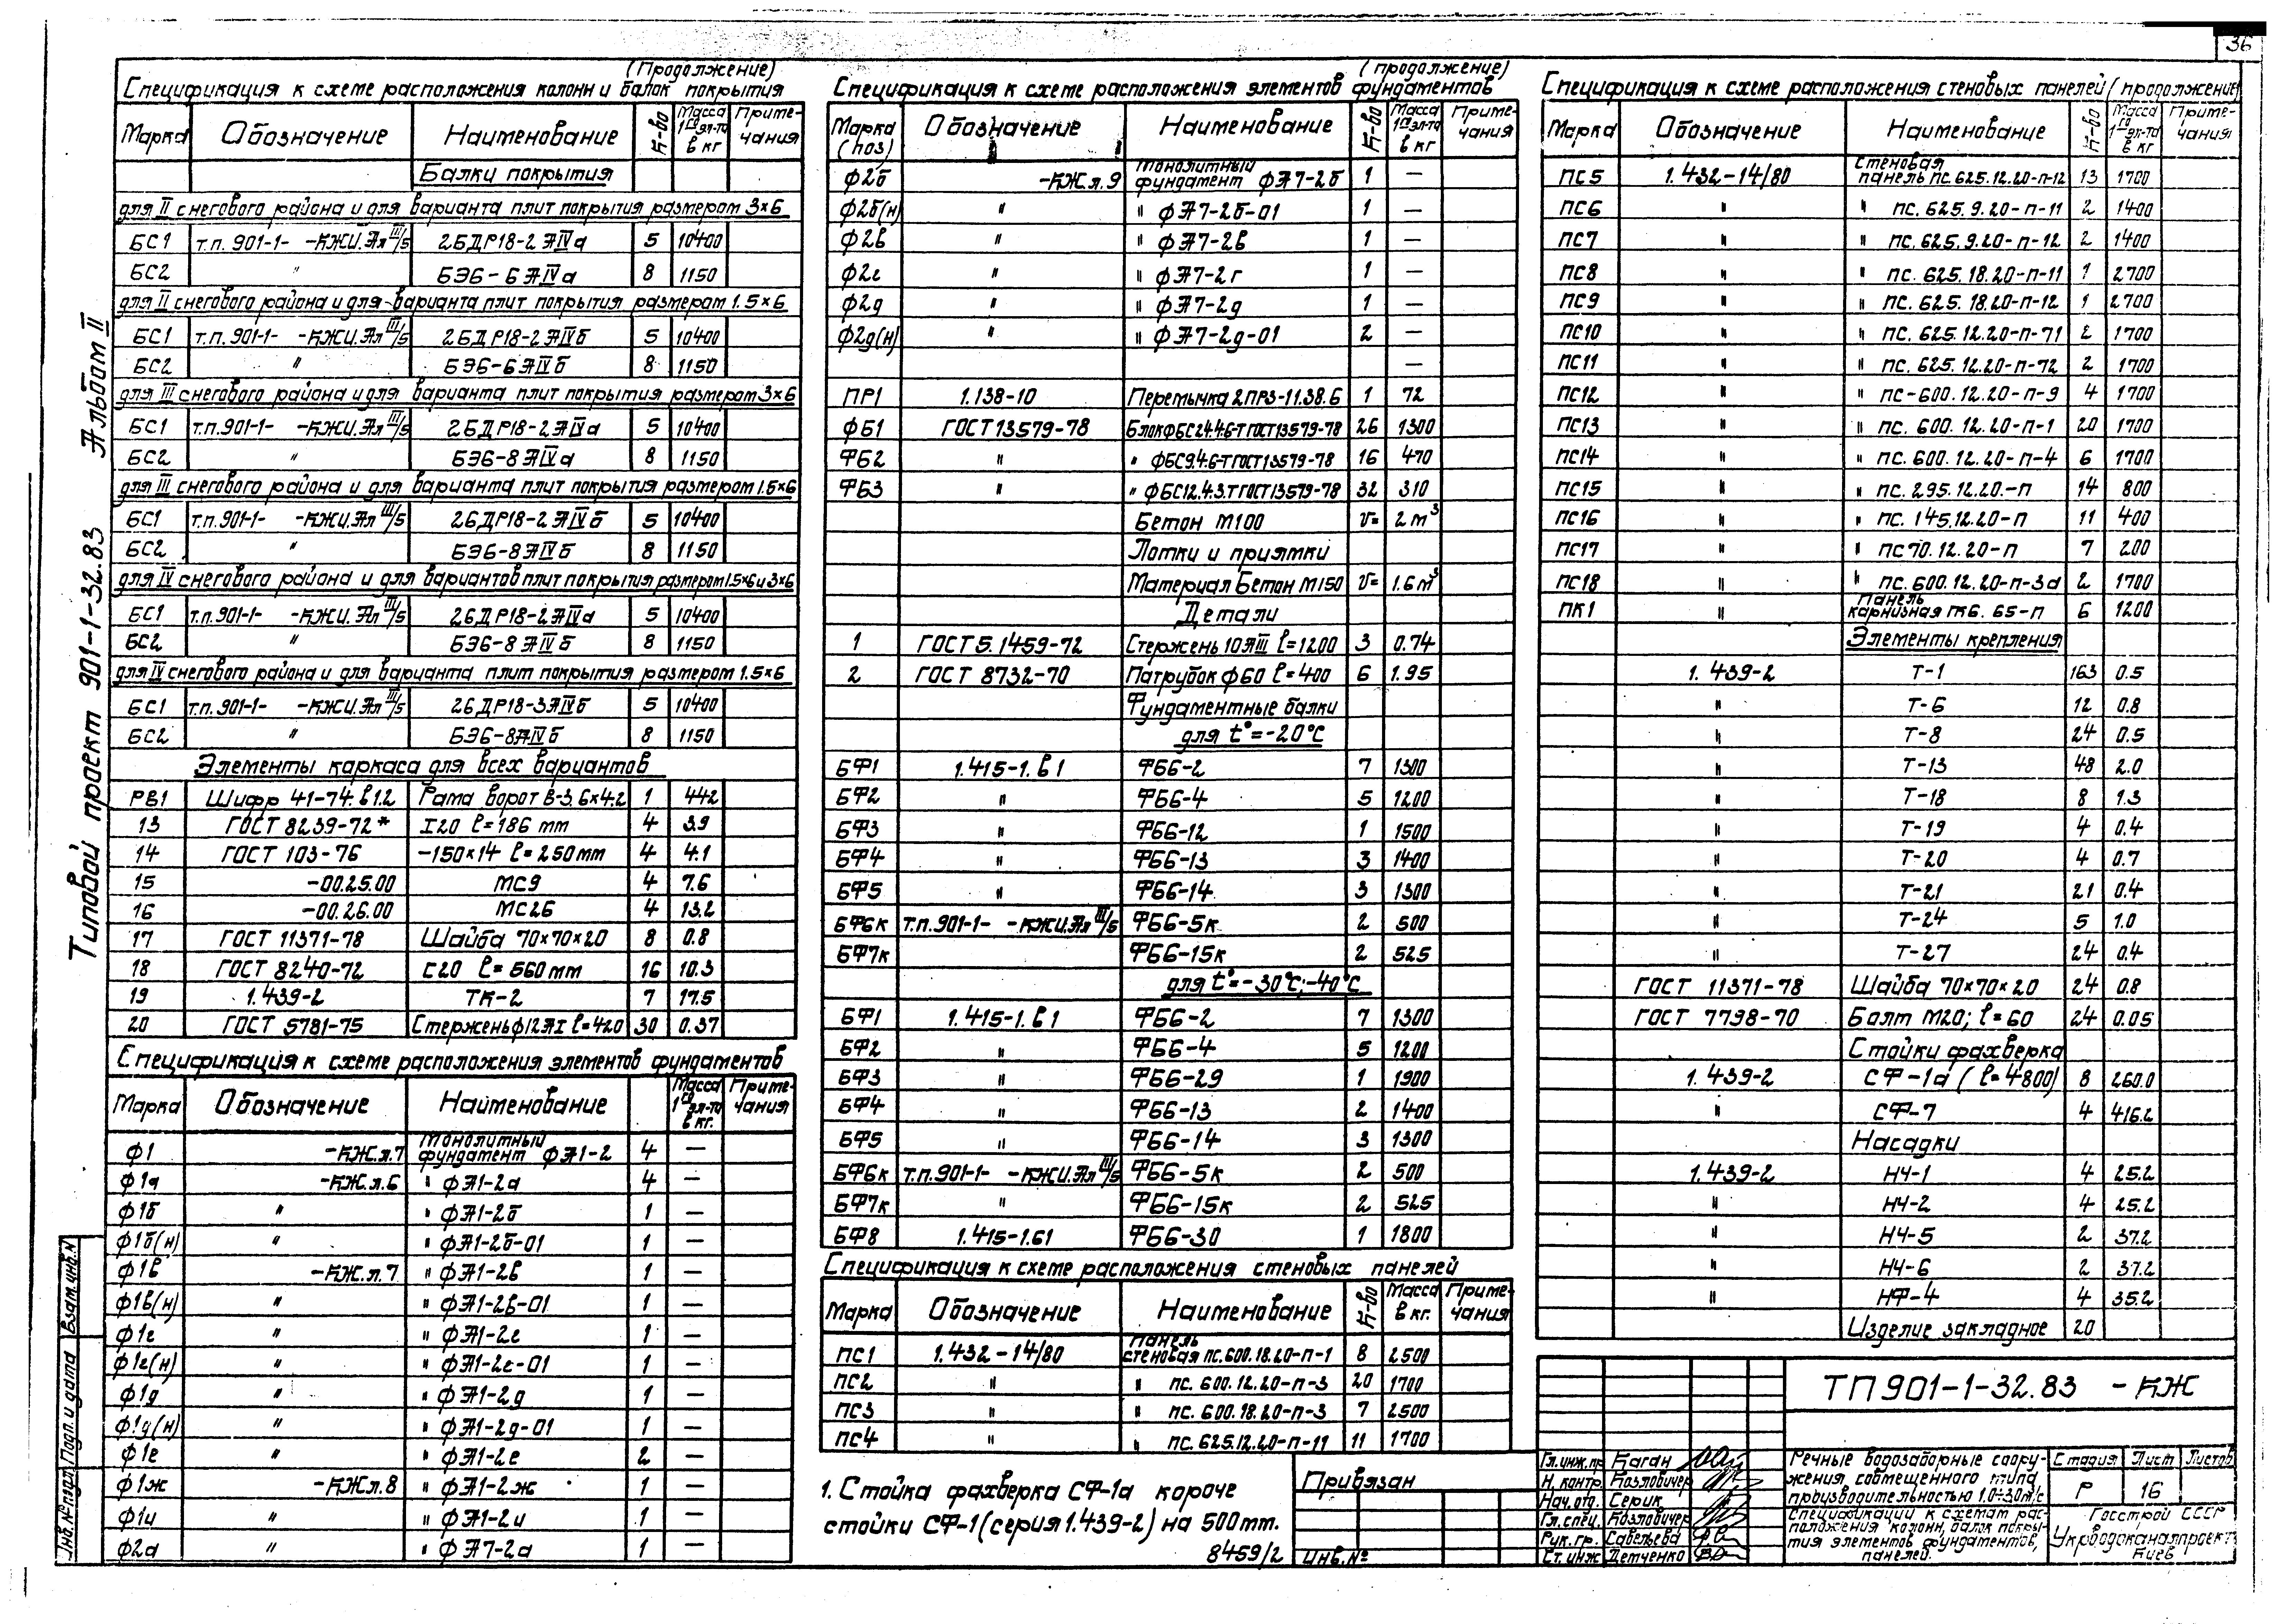 36
Типовой проект 901-1-32.83 Альбом II
(Продолжение)
Спецификация к схеме расположения колонн и балок покрытия
Марка Обозначение Наименование К-во Масса 1го эл-та в кг Примечания
Балки покрытия
для II снегового района и для варианта плит покрытия размером 3×6
БС1 т.п. 901-1- -КЖИ.Ал III/5 2БДР18-2АIVа 5 10400
БС2 " БЭ6-6АIVа 8 1150
для II снегового района и для варианта плит покрытия размером 1.5×6
БС1 т.п. 901-1- -КЖИ.Ал III/5 2БДР18-2АIVб 5 10400
БС2 " БЭ6-6АIVб 8 1150
для III снегового района и для варианта плит покрытия размером 3×6
БС1 т.п.901-1- -КЖИ.Ал III/5 2БДР18-2АIVа 5 10400
БС2 " БЭ6-8АIVа 8 1150
для III снегового района и для варианта плит покрытия размером 1.5×6
БС1 т.п.901-1- -КЖИ.Ал III/5 2БДР18-2АIVб 5 10400
БС2 " БЭ6-8АIVб 8 1150
для IV снегового района и для вариантов плит покрытия размером 1.5×6 и 3×6
БС1 т.п.901-1- -КЖИ.Ал III/5 2БДР18-2АIVа 5 10400
БС2 " БЭ6-8АIVб 8 1150
для IV снегового района и для варианта плит покрытия размером 1.5×6
БС1 т.п.901-1- -КЖИ.Ал III/5 2БДР18-3АIVб 5 10400
БС2 " БЭ6-8АIVб 8 1150
Элементы каркаса для всех вариантов
РВ1 Шифр 41-74.в1.2 Рама ворот В-3.6×4.2 1 442
13 ГОСТ 8239-72* I20 l=186 mm 4 3.9
14 ГОСТ 103-76 -150×14 l=250mm 4 4.1
15 -00.25.00 МС9 4 7.6
16 -00.26.00 МС26 4 13.2
17 ГОСТ 11371-78 Шайба 70×70×20 8 0.8
18 ГОСТ 8240-72 С20 l=560mm 16 10.3
19 1.439-2 ТК-2 7 17.5
20 ГОСТ 5781-75 Стержень ф12АI l=420 30 0.37
Спецификация к схеме расположения элементов фундаментов
Марка Обозначение Наименование Масса 1го эл-та в кг. Примечания
Ф1 -КЖ.л.7 Монолитный фундамент ФА1-2 4 —
Ф1а -КЖ.л.6 " ФА1-2а 4 —
Ф1б " " ФА1-2б 1 —
Ф1б(н) " " ФА1-2б-01 1 —
Ф1в -КЖ.л.7 " ФА1-2в 1 —
Ф1в(н) " " ФА1-2в-01 1 —
Ф1г " " ФА1-2г 1 —
Ф1г(н) " " ФА1-2г-01 1 —
Ф1д " " ФА1-2д 1 —
Ф1д(н) " " ФА1-2д-01 1 —
Ф1е " " ФА1-2е 2 —
Ф1ж -КЖ.л.8 " ФА1-2ж 1 —
Ф1и " " ФА1-2и 1 —
Ф2а " " ФА7-2а 1 —
(продолжение)
Спецификация к схеме расположения элементов фундаментов
Марка (поз) Обозначение Наименование К-во Масса 1го эл-та в кг Примечания
Ф2б -КЖ.л.9 Монолитный фундамент ФА7-2б 1 —
Ф2б(н) " " ФА7-2б-01 1 —
Ф2в " " ФА7-2в 1 —
Ф2г " " ФА7-2г 1 —
Ф2д " " ФА7-2д 1 —
Ф2д(н) " " ФА7-2д-01 2 —
—
ПР1 1.138-10 Перемычка 2ПР3-11.38.6 1 72
ФБ1 ГОСТ 13579-78 Блок ФБС24.4.6-Т ГОСТ13579-78 26 1300
ФБ2 " " ФБС9.4.6-Т ГОСТ13579-78 16 470
ФБ3 " " ФБС12.4.3.Т ГОСТ13579-78 32 310
Бетон М100 V= 2 м³
Лотки и приямки
Материал Бетон М150 V= 1.6м³
Детали
1 ГОСТ 5.1459-72 Стержень 10АIII l=1200 3 0.74
2 ГОСТ 8732-70 Патрубок ф60 l=400 6 1.95
Фундаментные балки
для t°=-20°С
БФ1 1.415-1.в1 ФБ6-2 7 1300
БФ2 " ФБ6-4 5 1200
БФ3 " ФБ6-12 1 1500
БФ4 " ФБ6-13 3 1400
БФ5 " ФБ6-14 3 1300
БФ6к т.п.901-1- -КЖИ.Ал III/5 ФБ6-5к 2 500
БФ7к ФБ6-15к 2 525
для t°=-30°С;-40°С
БФ1 1.415-1.в1 ФБ6-2 7 1300
БФ2 " ФБ6-4 5 1200
БФ3 " ФБ6-29 1 1900
БФ4 " ФБ6-13 2 1400
БФ5 " ФБ6-14 3 1300
БФ6к т.п.901-1- -КЖИ.Ал III/5 ФБ6-5к 2 500
БФ7к " ФБ6-15к 2 525
БФ8 1.415-1.в1 ФБ6-30 1 1800
Спецификация к схеме расположения стеновых панелей
Марка Обозначение Наименование К-во Масса в кг. Примечания
ПС1 1.432-14/80 Панель стеновая пс.600.18.20-п-1 8 2500
ПС2 " " пс.600.12.20-п-3 20 1700
ПС3 " " пс.600.18.20-п-3 7 2500
ПС4 " " пс.625.12.20-п-11 11 1700
1. Стойка фахверка СФ-1а короче
стойки СФ-1 (серия 1.439-2) на 500mm.
8459/2
Спецификация к схеме расположения стеновых панелей (продолжение)
Марка Обозначение Наименование К-во Масса 1го эл-та в кг Примечания
ПС5 1.432-14/80 Стеновая панель пс.625.12.20-п-12 13 1700
ПС6 " " пс.625.9.20-п-11 2 1400
ПС7 " " пс.625.9.20-п-12 2 1400
ПС8 " " пс.625.18.20-п-11 1 2700
ПС9 " " пс.625.18.20-п-12 1 2700
ПС10 " " пс.625.12.20-п-71 2 1700
ПС11 " " пс.625.12.20-п-72 2 1700
ПС12 " " пс-600.12.20-п-9 4 1700
ПС13 " " пс.600.12.20-п-1 20 1700
ПС14 " " пс.600.12.20-п-4 6 1700
ПС15 " " пс.295.12.20.-п 14 800
ПС16 " " пс.145.12.20-п 11 400
ПС17 " " пс70.12.20-п 7 200
ПС18 " " пс.600.12.20-п-3а 2 1700
ПК1 " Панель карнизная ПК6.65-п 6 1200
Элементы крепления
1.439-2 Т-1 163 0.5
" Т-6 12 0.8
" Т-8 24 0.5
" Т-13 48 2.0
" Т-18 8 1.3
" Т-19 4 0.4
" Т-20 4 0.7
" Т-21 21 0.4
" Т-24 5 1.0
" Т-27 24 0.4
ГОСТ 11371-78 Шайба 70×70×20 24 0.8
ГОСТ 7798-70 Болт М20; l=60 24 0.05
Стойки фахверка
1.439-2 СФ-1а (l=4800) 8 260.0
" СФ-7 4 416.2
Насадки
1.439-2 НЧ-1 4 25.2
" НЧ-2 4 25.2
" НЧ-5 2 37.2
" НЧ-6 2 37.2
" НФ-4 4 35.2
Изделие закладное 20
ТП901-1-32.83 -КЖ
Привязан
Инв.№
Гл.инж.пр Каган
Н.контр. Козловичер
Нач.отд. Серик
Гл.спец. Козловичер
Рук.гр. Савельева
Ст.инж Детченко
Речные водозаборные сооружения совмещенного типа производительностью 1.0÷3.0м³/с
Стадия Лист Листов
Р 16
Спецификации к схемам расположения колонн, балок покрытия элементов фундаментов, панелей.
Госстрой СССР
Укрводоканалпроект
Киев
Взам.инв.№
Подп. и дата
Инв.№подл.